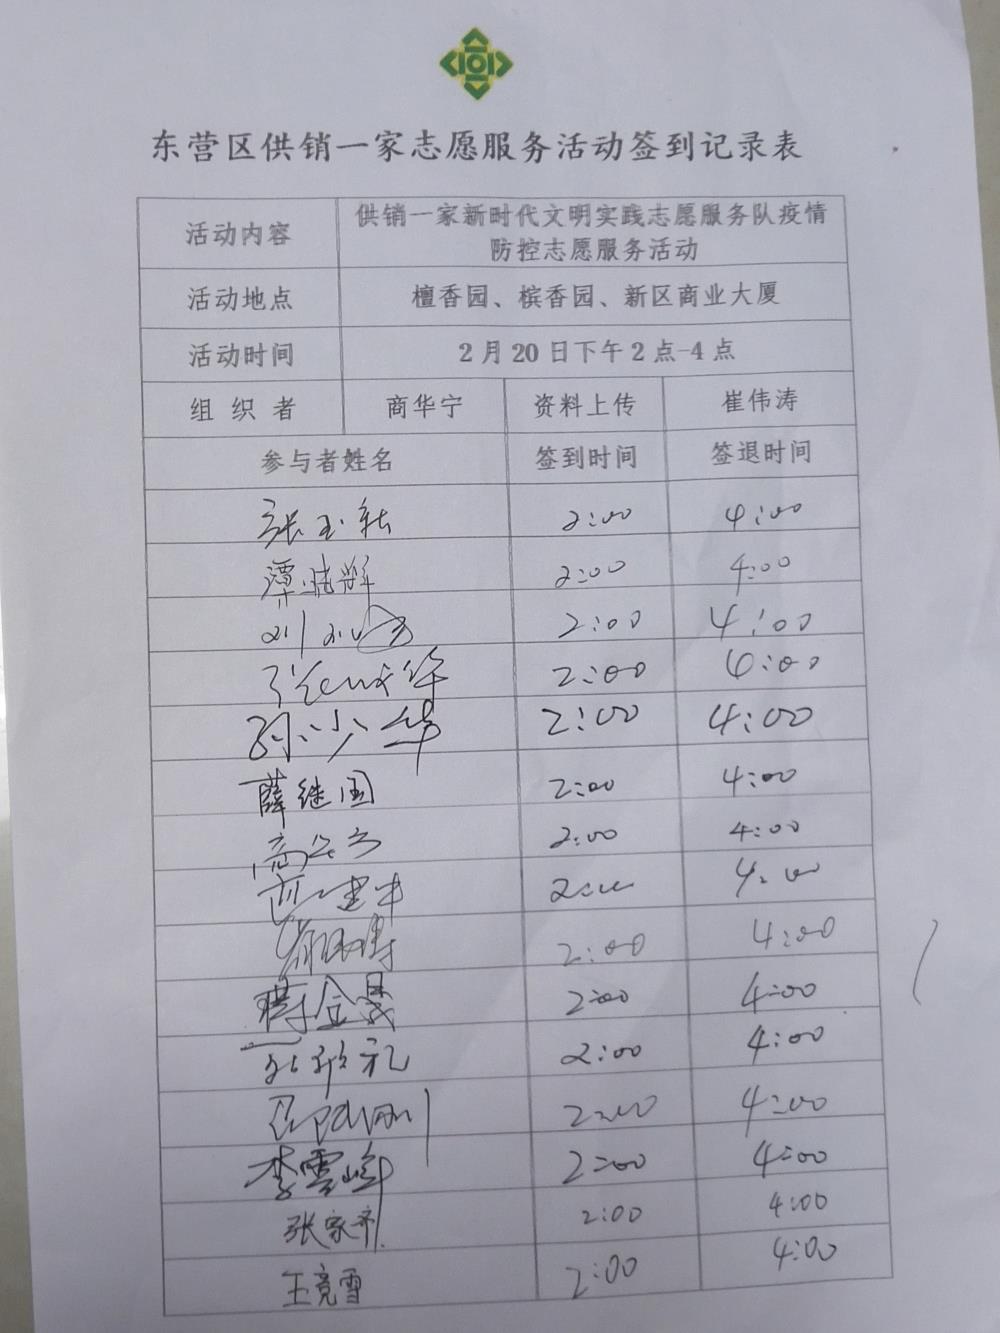 东营区供销一家志愿服务活动签到记录表
活动内容 供销一家新时代文明实践志愿服务队疫情
防控志愿服务活动
活动地点 檀香园、槟香园、新区商业大厦
活动时间 2月20日下午2点-4点
组织者 商华宁 资料上传 崔伟涛
参与者姓名 签到时间 签退时间
张玉 2:00 4:00
谭晓辉 2:00 4:00
刘 2:00 4:00
张 华 2:00 4:00
孙少华 2:00 4:00
薛继国 2:00 4:00
商华宁 2:00 4:00
2:00 4:00
2:00 4:00
蒋金晟 2:00 4:00
礼 2:00 4:00
2:00 4:00
李雪峰 2:00 4:00
张家齐 2:00 4:00
王竟雪 2:00 4:00